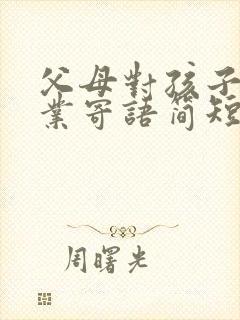 父母對孩子
業寄語简短
周曙光